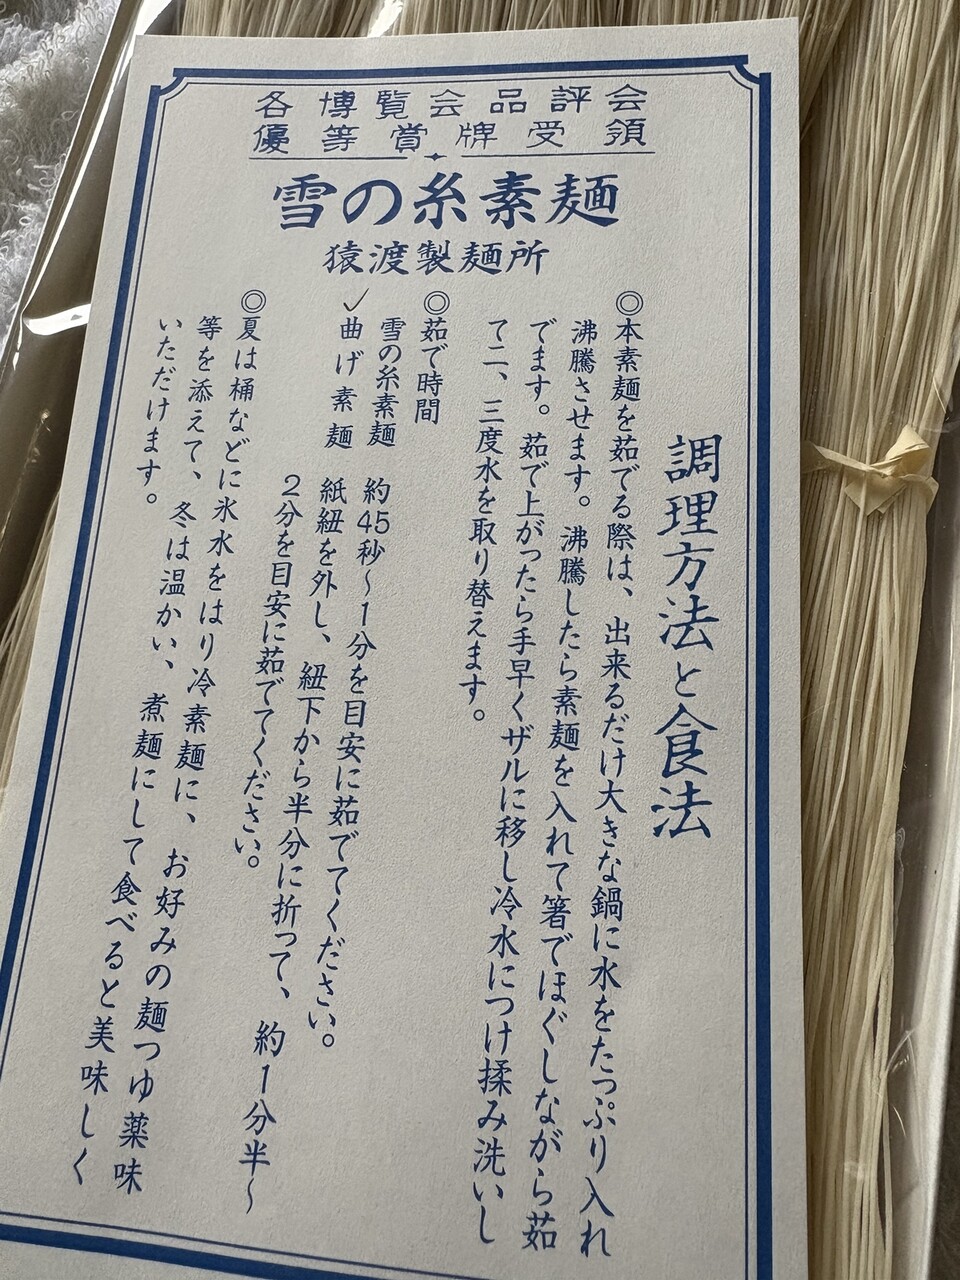 各博覧会品評会
優等賞牌受領
雪の糸素麺
猿渡製麺所
調理方法と食法
◎本素麺を茹でる際は、出来るだけ大きな鍋に水をたっぷり入れ
沸騰させます。沸騰したら素麺を入れて箸でほぐしながら茹
でます。茹で上がったら手早くザルに移し冷水につけ揉み洗いし
て二、三度水を取り替えます。
◎茹で時間
雪の糸素麺 約45秒〜1分を目安に茹でてください。
✓曲げ素麺 紙紐を外し、紐下から半分に折って、約1分半〜
2分を目安に茹でてください。
◎夏は桶などに氷水をはり冷素麺に、お好みの麺つゆ薬味
等を添えて、冬は温かい、煮麺にして食べると美味しく
いただけます。